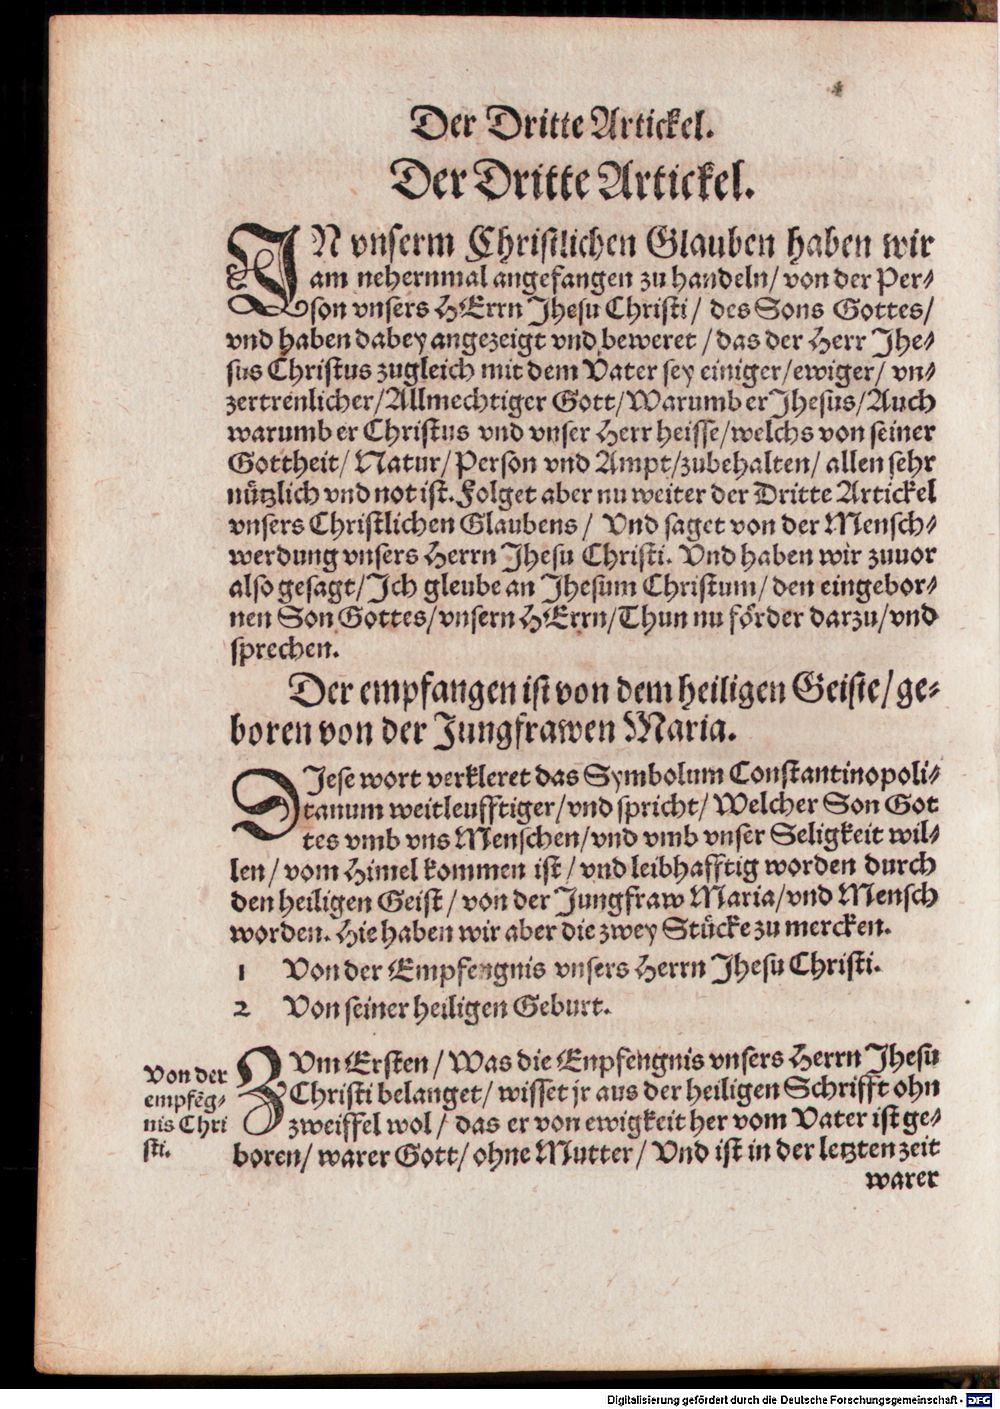 Der Dritte Artickel.
Der Dritte Artickel.
IN vnserm Christlichen Glauben haben wir
am nehernmal angefangen zu handeln/ von der Per-
son vnsers HErrn Jhesu Christi/ des Sons Gottes/
vnd haben dabey angezeigt vnd beweret/ das der Herr Jhe-
sus Christus zugleich mit dem Vater sey einiger/ ewiger/ vn-
zertrenlicher/ Allmechtiger Gott/ Warumb er Jhesus/ Auch
warumb er Christus vnd vnser Herr heisse/ welchs von seiner
Gottheit/ Natur/ Person vnd Ampt/ zubehalten/ allen sehr
nützlich vnd not ist. Folget aber nu weiter der Dritte Artickel
vnsers Christlichen Glaubens/ Vnd saget von der Mensch-
werdung vnsers Herrn Jhesu Christi. Vnd haben wir zuuor
also gesagt/ Ich gleube an Jhesum Christum/ den eingebor-
nen Son Gottes/ vnsern HErrn/ Thun nu förder darzu/ vnd
sprechen.
Der empfangen ist von dem heiligen Geiste/ ge-
boren von der Jungfrawen Maria.
DIese wort verkleret das Symbolum Constantinopoli-
tanum weitleufftiger/ vnd spricht/ Welcher Son Got
tes vmb vns Menschen/ vnd vmb vnser Seligkeit wil-
len/ vom Himel kommen ist/ vnd leibhafftig worden durch
den heiligen Geist/ von der Jungfraw Maria/ vnd Mensch
worden. Hie haben wir aber die zwey Stücke zu mercken.
1 Von der Empfengnis vnsers Herrn Jhesu Christi.
2 Von seiner heiligen Geburt.
Von der
empfēg-
nis Chri
sti.
ZVm Ersten/ Was die Enpfengnis vnsers Herrn Jhesu
Christi belanget/ wisset jr aus der heiligen Schrifft ohn
zweiffel wol/ das er von ewigkeit her vom Vater ist ge-
boren/ warer Gott/ ohne Mutter/ Vnd ist in der letzten zeit
warer
Digitalisierung gefördert durch die Deutsche Forschungsgemeinschaft - DFG